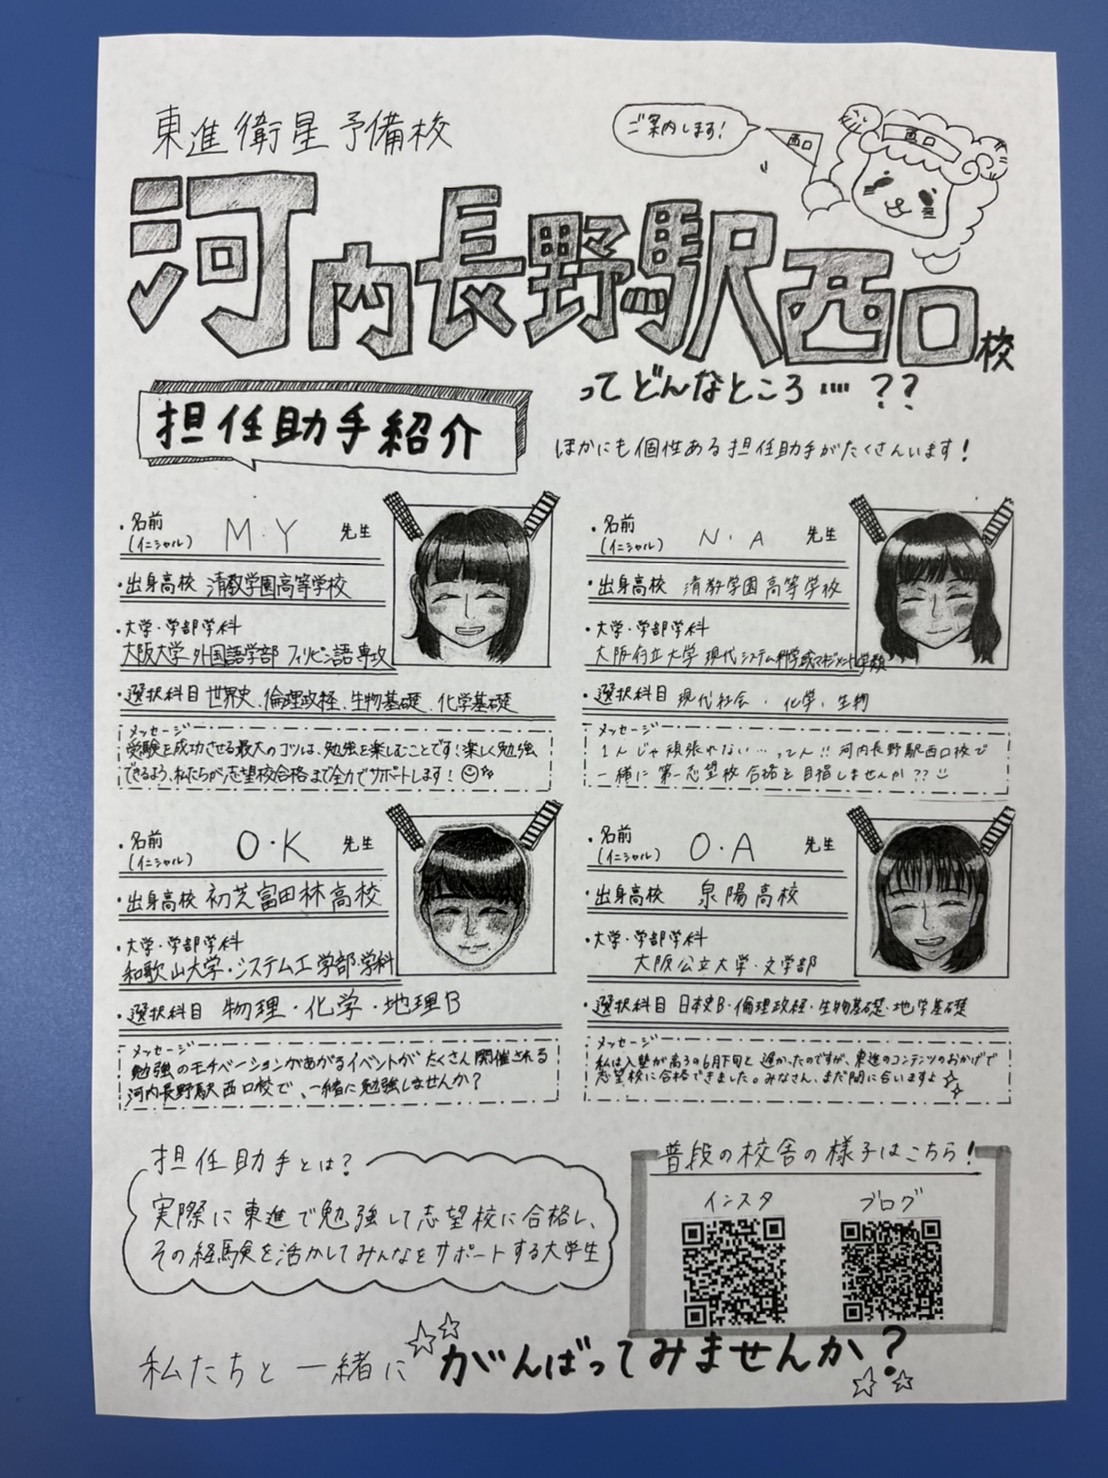 東進衛星予備校
ご案内します!
西口
西口
河内長野駅西口校
ってどんなところ…??
担任助手紹介
ほかにも個性ある担任助手がたくさんいます!
・名前
(イニシャル)
M・Y 先生
・出身高校 清教学園高等学校
・大学・学部学科
大阪大学 外国語学部 フィリピン語専攻
・選択科目 世界史、倫理政経、生物基礎、化学基礎
メッセージ
受験を成功させる最大のコツは、勉強を楽しむことです!楽しく勉強
できるよう、私たちが志望校合格まで全力でサポートします!
・名前
(イニシャル)
N・A 先生
・出身高校 清教学園高等学校
・大学・学部学科
大阪府立大学 現代システム科学域マネジメント学類
・選択科目 現代社会・化学・生物
メッセージ
1人じゃ頑張れない…ってん!! 河内長野駅西口校で
一緒に第一志望校合格を目指しませんか??
・名前
(イニシャル)
O・K 先生
・出身高校 初芝富田林高校
・大学・学部学科
和歌山大学・システム工学部・学科
・選択科目 物理・化学・地理B
メッセージ
勉強のモチベーションがあがるイベントがたくさん開催される
河内長野駅西口校で、一緒に勉強しませんか?
・名前
(イニシャル)
O・A 先生
・出身高校 泉陽高校
・大学・学部学科
大阪公立大学・文学部
・選択科目 日本史B・倫理政経・生物基礎・地学基礎
メッセージ
私は入塾が高3の6月下旬と遅かったのですが、東進のコンテンツのおかげで
志望校に合格できました。みなさん、まだ間に合いますよ
担任助手とは?
実際に東進で勉強して志望校に合格し、
その経験を活かしてみんなをサポートする大学生
普段の校舎の様子はこちら!
インスタ
ブログ
私たちと一緒に がんばってみませんか?